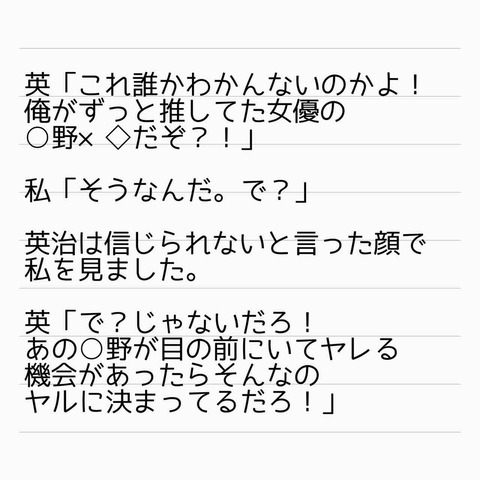 英「これ誰かわかんないのかよ！
俺がずっと推してた女優の
〇野× ◇だぞ？！」
私「そうなんだ。で？」
英治は信じられないと言った顔で
私を見ました。
英「で？じゃないだろ！
あの〇野が目の前にいてヤレる
機会があったらそんなの
ヤルに決まってるだろ！」